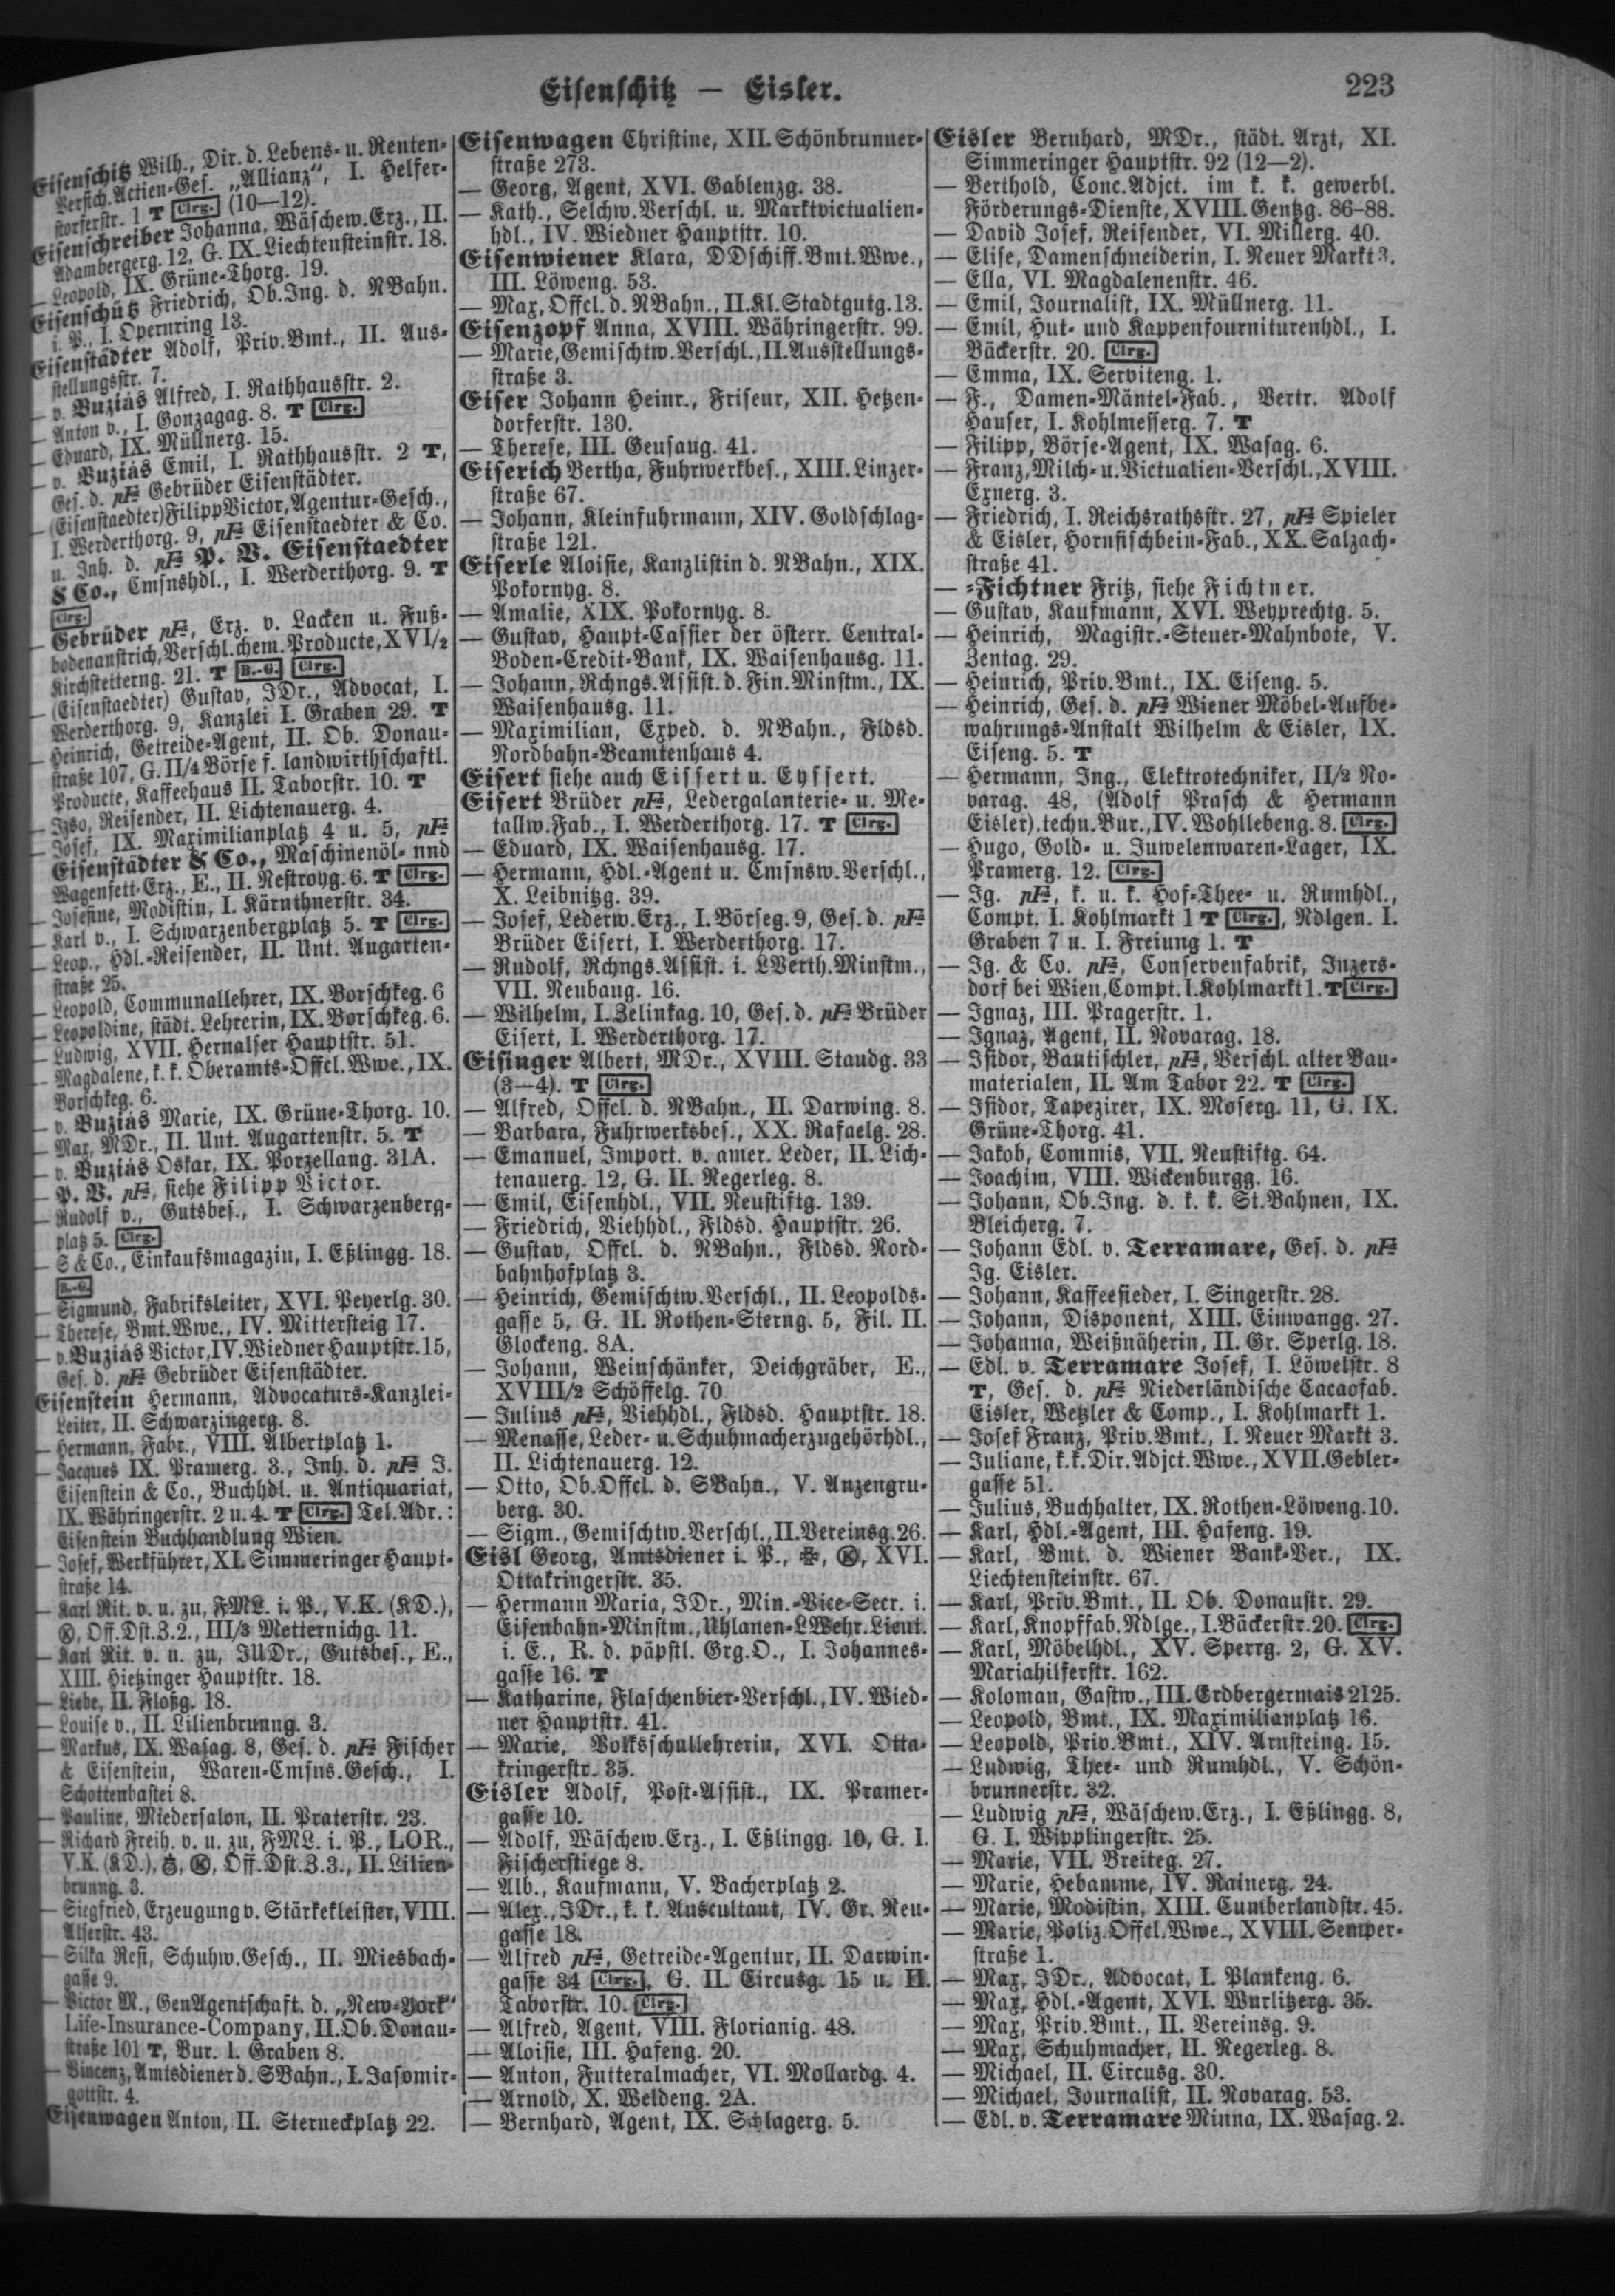 Eisenschitz — Eisler.
223
Eisenschitz Wilh., Dir. d. Lebens- u. Renten-
Versich. Actien-Ges. „Allianz“, I. Helfer-
storferstr. 1 T Clrg. (10—12).
Eisenschreiber Johanna, Wäschew. Erz., II.
Adambergerg. 12, G. IX. Liechtensteinstr. 18.
— Leopold, IX. Grüne-Thorg. 19.
Eisenschütz Friedrich, Ob. Ing. d. NBahn.
i. P., I. Opernring 13.
Eisenstädter Adolf, Priv. Bmt., II. Aus-
stellungsstr. 7.
— v. Buziás Alfred, I. Rathhausstr. 2.
— Anton v., I. Gonzagag. 8. T Clrg.
— Eduard, IX. Müllnerg. 15.
— v. Buziás Emil, I. Rathhausstr. 2 T,
Ges. d. pF Gebrüder Eisenstädter.
— (Eisenstaedter) Filipp Victor, Agentur-Gesch.,
I. Werderthorg. 9, pF Eisenstaedter & Co.
u. Inh. d. pF P. V. Eisenstaedter
& Co., Cmsnshdl., I. Werderthorg. 9. T
Clrg.
— Gebrüder pF, Erz. v. Lacken u. Fuß-
bodenanstrich, Verschl. chem. Producte, XVI/2
Kirchstetterng. 21. T R.-G. Clrg.
— (Eisenstaedter) Gustav, JDr., Advocat, I.
Werderthorg. 9, Kanzlei I. Graben 29. T
— Heinrich, Getreide-Agent, II. Ob. Donau-
straße 107, G. II/4 Börse f. landwirthschaftl.
Producte, Kaffeehaus II. Taborstr. 10. T
— Izso, Reisender, II. Lichtenauerg. 4.
— Josef, IX. Maximilianplatz 4 u. 5, pF
Eisenstädter & Co., Maschinenöl- und
Wagenfett-Erz., E., II. Nestroyg. 6. T Clrg.
— Josefine, Modistin, I. Kärnthnerstr. 34.
— Karl v., I. Schwarzenbergplatz 5. T Clrg.
— Leop., Hdl.-Reisender, II. Unt. Augarten-
straße 25.
— Leopold, Communallehrer, IX. Borschkeg. 6
— Leopoldine, städt. Lehrerin, IX. Borschkeg. 6.
— Ludwig, XVII. Hernalser Hauptstr. 51.
— Magdalene, k. k. Oberamts-Offcl. Wwe., IX.
Borschkeg. 6.
— v. Buziás Marie, IX. Grüne-Thorg. 10.
— Max, MDr., II. Unt. Augartenstr. 5. T
— v. Buziás Oskar, IX. Porzellang. 31A.
— P. V. pF, siehe Filipp Victor.
— Rudolf v., Gutsbes., I. Schwarzenberg-
platz 5. Clrg.
— S & Co., Einkaufsmagazin, I. Eßlingg. 18.
R.-G.
— Sigmund, Fabriksleiter, XVI. Peyerlg. 30.
— Therese, Bmt. Wwe., IV. Mittersteig 17.
— v. Buziás Victor, IV. Wiedner Hauptstr. 15,
Ges. d. pF Gebrüder Eisenstädter.
Eisenstein Hermann, Advocaturs-Kanzlei-
Leiter, II. Schwarzingerg. 8.
— Hermann, Fabr., VIII. Albertplatz 1.
— Jacques IX. Pramerg. 3., Inh. d. pF J.
Eisenstein & Co., Buchhdl. u. Antiquariat,
IX. Währingerstr. 2 u. 4. T Clrg. Tel. Adr.:
Eisenstein Buchhandlung Wien.
— Josef, Werkführer, XI. Simmeringer Haupt-
straße 14.
— Karl Rit. v. u. zu, FML. i. P., V.K. (KD.),
Off. Dst. Z. 2., III/3 Metternichg. 11.
— Karl Rit. v. u. zu, JUDr., Gutsbes., E.,
XIII. Hietzinger Hauptstr. 18.
— Liebe, II. Floßg. 18.
— Louise v., II. Lilienbrunng. 3.
— Markus, IX. Wasag. 8, Ges. d. pF Fischer
& Eisenstein, Waren-Cmsns. Gesch., I.
Schottenbastei 8.
— Pauline, Miedersalon, II. Praterstr. 23.
— Richard Freih. v. u. zu, FML. i. P., LOR.,
V.K. (KD.), Off. Dst. Z. 3., II. Lilien-
brunng. 3.
— Siegfried, Erzeugung v. Stärkekleister, VIII.
Alserstr. 43.
— Silka Resi, Schuhw. Gesch., II. Miesbach-
gasse 9.
— Victor M., GenAgentschaft. d. „New-York“
Life-Insurance-Company, II. Ob. Donau-
straße 101 T, Bur. 1. Graben 8.
— Vincenz, Amtsdiener d. SBahn., I. Jasomir-
gottstr. 4.
Eisenwagen Anton, II. Sterneckplatz 22.
Eisenwagen Christine, XII. Schönbrunner-
straße 273.
— Georg, Agent, XVI. Gablenzg. 38.
— Kath., Selchw. Verschl. u. Marktvictualien-
hdl., IV. Wiedner Hauptstr. 10.
Eisenwiener Klara, DDschiff. Bmt. Wwe.,
III. Löweng. 53.
— Max, Offcl. d. NBahn., II. Kl. Stadtgutg. 13.
Eisenzopf Anna, XVIII. Währingerstr. 99.
— Marie, Gemischtw. Verschl., II. Ausstellungs-
straße 3.
Eiser Johann Heinr., Friseur, XII. Hetzen-
dorferstr. 130.
— Therese, III. Geusaug. 41.
Eiserich Bertha, Fuhrwerkbes., XIII. Linzer-
straße 67.
— Johann, Kleinfuhrmann, XIV. Goldschlag-
straße 121.
Eiserle Aloisie, Kanzlistin d. NBahn., XIX.
Pokornyg. 8.
— Amalie, XIX. Pokornyg. 8.
— Gustav, Haupt-Cassier der österr. Central-
Boden-Credit-Bank, IX. Waisenhausg. 11.
— Johann, Rchngs. Assist. d. Fin. Minstm., IX.
Waisenhausg. 11.
— Maximilian, Exped. d. NBahn., Fldsd.
Nordbahn-Beamtenhaus 4.
Eisert siehe auch Eissert u. Eyssert.
Eisert Brüder pF, Ledergalanterie- u. Me-
tallw. Fab., I. Werderthorg. 17. T Clrg.
— Eduard, IX. Waisenhausg. 17.
— Hermann, Hdl.-Agent u. Cmsnsw. Verschl.,
X. Leibnitzg. 39.
— Josef, Lederw. Erz., I. Börseg. 9, Ges. d. pF
Brüder Eisert, I. Werderthorg. 17.
— Rudolf, Rchngs. Assist. i. LVerth. Minstm.,
VII. Neubaug. 16.
— Wilhelm, I. Zelinkag. 10, Ges. d. pF Brüder
Eisert, I. Werderthorg. 17.
Eisinger Albert, MDr., XVIII. Staudg. 33
(3—4). T Clrg.
— Alfred, Offcl. d. NBahn., II. Darwing. 8.
— Barbara, Fuhrwerksbes., XX. Rafaelg. 28.
— Emanuel, Import. v. amer. Leder, II. Lich-
tenauerg. 12, G. II. Negerleg. 8.
— Emil, Eisenhdl., VII. Neustiftg. 139.
— Friedrich, Viehhdl., Fldsd. Hauptstr. 26.
— Gustav, Offcl. d. NBahn., Fldsd. Nord-
bahnhofplatz 3.
— Heinrich, Gemischtw. Verschl., II. Leopolds-
gasse 5, G. II. Rothen-Sterng. 5, Fil. II.
Glockeng. 8A.
— Johann, Weinschänker, Deichgräber, E.,
XVIII/2 Schöffelg. 70
— Julius pF, Viehhdl., Fldsd. Hauptstr. 18.
— Menasse, Leder- u. Schuhmacherzugehörhdl.,
II. Lichtenauerg. 12.
— Otto, Ob. Offcl. d. SBahn., V. Anzengru-
berg. 30.
— Sigm., Gemischtw. Verschl., II. Vereinsg. 26.
Eisl Georg, Amtsdiener i. P., XVI.
Ottakringerstr. 35.
— Hermann Maria, JDr., Min.-Vice-Secr. i.
Eisenbahn-Minstm., Uhlanen-LWehr. Lieut.
i. E., R. d. päpstl. Grg. O., I. Johannes-
gasse 16. T
— Katharine, Flaschenbier-Verschl., IV. Wied-
ner Hauptstr. 41.
— Marie, Volksschullehrerin, XVI. Otta-
kringerstr. 35.
Eisler Adolf, Post-Assist., IX. Pramer-
gasse 10.
— Adolf, Wäschew. Erz., I. Eßlingg. 10, G. I.
Fischerstiege 8.
— Alb., Kaufmann, V. Bacherplatz 2.
— Alex., JDr., k. k. Auscultant, IV. Gr. Neu-
gasse 18.
— Alfred pF, Getreide-Agentur, II. Darwin-
gasse 34 Clrg., G. II. Circusg. 15 u. II.
Taborstr. 10. Clrg.
— Alfred, Agent, VIII. Florianig. 48.
— Aloisie, III. Hafeng. 20.
— Anton, Futteralmacher, VI. Mollardg. 4.
— Arnold, X. Weldeng. 2A.
— Bernhard, Agent, IX. Schlagerg. 5.
Eisler Bernhard, MDr., städt. Arzt, XI.
Simmeringer Hauptstr. 92 (12—2).
— Berthold, Conc. Adjct. im k. k. gewerbl.
Förderungs-Dienste, XVIII. Gentzg. 86-88.
— David Josef, Reisender, VI. Millerg. 40.
— Elise, Damenschneiderin, I. Neuer Markt 3.
— Ella, VI. Magdalenenstr. 46.
— Emil, Journalist, IX. Müllnerg. 11.
— Emil, Hut- und Kappenfourniturenhdl., I.
Bäckerstr. 20. Clrg.
— Emma, IX. Serviteng. 1.
— F., Damen-Mäntel-Fab., Vertr. Adolf
Hauser, I. Kohlmesserg. 7. T
— Filipp, Börse-Agent, IX. Wasag. 6.
— Franz, Milch- u. Victualien-Verschl., XVIII.
Exnerg. 3.
— Friedrich, I. Reichsrathsstr. 27, pF Spieler
& Eisler, Hornfischbein-Fab., XX. Salzach-
straße 41.
— -Fichtner Fritz, siehe Fichtner.
— Gustav, Kaufmann, XVI. Weyprechtg. 5.
— Heinrich, Magistr.-Steuer-Mahnbote, V.
Zentag. 29.
— Heinrich, Priv. Bmt., IX. Eiseng. 5.
— Heinrich, Ges. d. pF Wiener Möbel-Aufbe-
wahrungs-Anstalt Wilhelm & Eisler, IX.
Eiseng. 5. T
— Hermann, Ing., Elektrotechniker, II/2 No-
varag. 48, (Adolf Prasch & Hermann
Eisler). techn. Bur., IV. Wohllebeng. 8. Clrg.
— Hugo, Gold- u. Juwelenwaren-Lager, IX.
Pramerg. 12. Clrg.
— Ig. pF, k. u. k. Hof-Thee- u. Rumhdl.,
Compt. I. Kohlmarkt 1 T Clrg., Ndlgen. I.
Graben 7 u. I. Freiung 1. T
— Ig. & Co. pF, Conservenfabrik, Inzers-
dorf bei Wien, Compt. I. Kohlmarkt 1. T Clrg.
— Ignaz, III. Pragerstr. 1.
— Ignaz, Agent, II. Novarag. 18.
— Isidor, Bautischler, pF, Verschl. alter Bau-
materialen, II. Am Tabor 22. T Clrg.
— Isidor, Tapezirer, IX. Moserg. 11, G. IX.
Grüne-Thorg. 41.
— Jakob, Commis, VII. Neustiftg. 64.
— Joachim, VIII. Wickenburgg. 16.
— Johann, Ob. Ing. d. k. k. St. Bahnen, IX.
Bleicherg. 7.
— Johann Edl. v. Terramare, Ges. d. pF
Ig. Eisler.
— Johann, Kaffeesieder, I. Singerstr. 28.
— Johann, Disponent, XIII. Einwangg. 27.
— Johanna, Weißnäherin, II. Gr. Sperlg. 18.
— Edl. v. Terramare Josef, I. Löwelstr. 8
T, Ges. d. pF Niederländische Cacaofab.
Eisler, Wetzler & Comp., I. Kohlmarkt 1.
— Josef Franz, Priv. Bmt., I. Neuer Markt 3.
— Juliane, k. k. Dir. Adjct. Wwe., XVII. Gebler-
gasse 51.
— Julius, Buchhalter, IX. Rothen-Löweng. 10.
— Karl, Hdl.-Agent, III. Hafeng. 19.
— Karl, Bmt. d. Wiener Bank-Ver., IX.
Liechtensteinstr. 67.
— Karl, Priv. Bmt., II. Ob. Donaustr. 29.
— Karl, Knopffab. Ndlge., I. Bäckerstr. 20. Clrg.
— Karl, Möbelhdl., XV. Sperrg. 2, G. XV.
Mariahilferstr. 162.
— Koloman, Gastw., III. Erdbergermais 2125.
— Leopold, Bmt., IX. Maximilianplatz 16.
— Leopold, Priv. Bmt., XIV. Arnsteing. 15.
— Ludwig, Thee- und Rumhdl., V. Schön-
brunnerstr. 32.
— Ludwig pF, Wäschew. Erz., I. Eßlingg. 8,
G. I. Wipplingerstr. 25.
— Marie, VII. Breiteg. 27.
— Marie, Hebamme, IV. Rainerg. 24.
— Marie, Modistin, XIII. Cumberlandstr. 45.
— Marie, Poliz. Offcl. Wwe., XVIII. Semper-
straße 1.
— Max, JDr., Advocat, I. Plankeng. 6.
— Max, Hdl.-Agent, XVI. Wurlitzerg. 35.
— Max, Priv. Bmt., II. Vereinsg. 9.
— Max, Schuhmacher, II. Negerleg. 8.
— Michael, II. Circusg. 30.
— Michael, Journalist, II. Novarag. 53.
— Edl. v. Terramare Minna, IX. Wasag. 2.